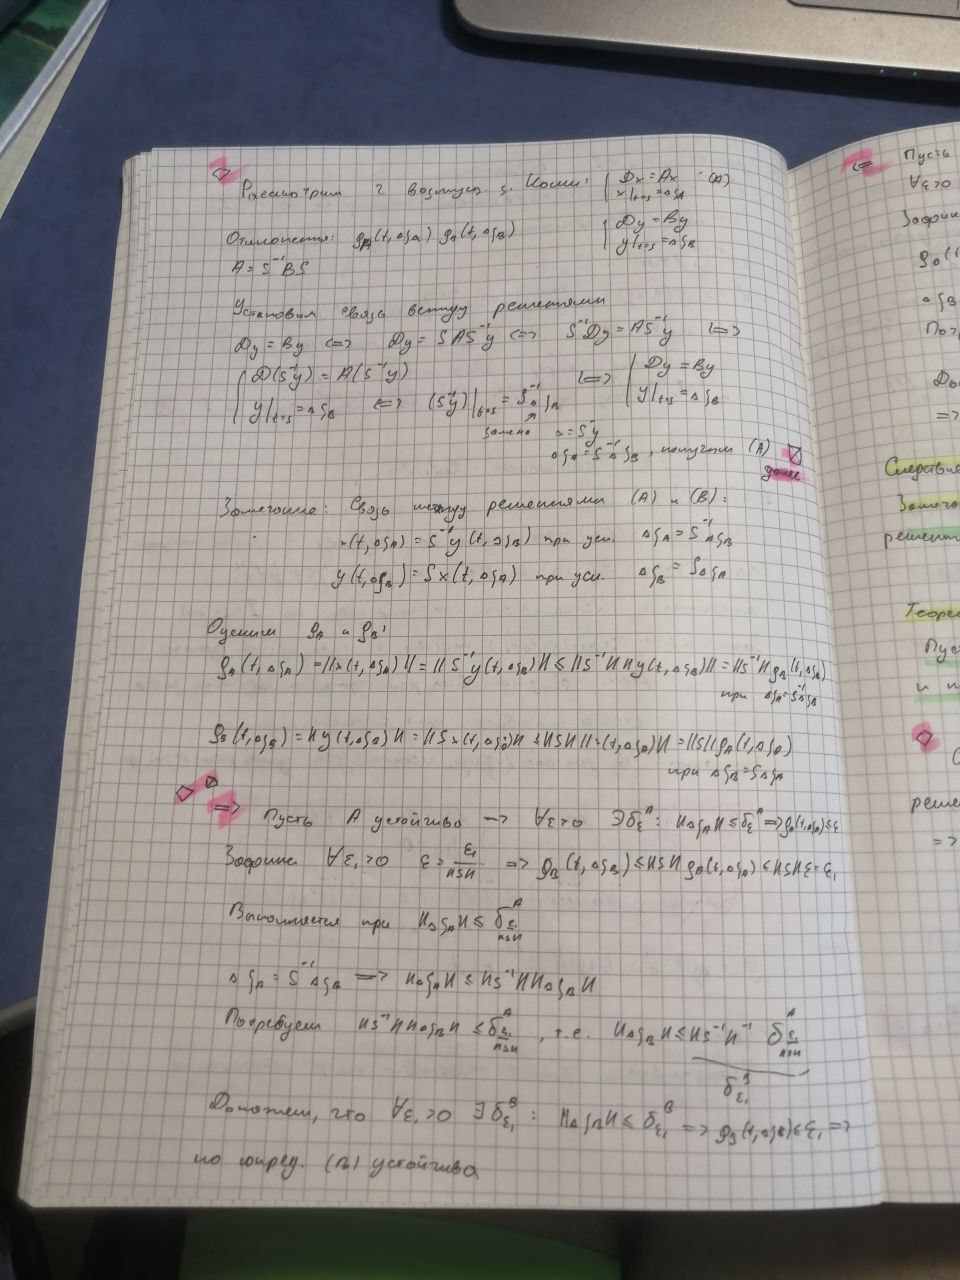 ◇ Рассмотрим 2 возмущ. з. Коши: { Dx = Ax (A)
x|t=s = Δξ_A
Отклонения: ρ_A(t, Δξ_A) ρ_A(t, Δξ_B) { Dy = By
y|t=s = Δξ_B
A = S⁻¹BS
Установим связь между решениями
Dy = By <=> Dy = SAS⁻¹y <=> S⁻¹Dy = AS⁻¹y <=>
{ D(S⁻¹y) = A(S⁻¹y) <=> { Dy = By
y|t=s = Δξ_B <=> (S⁻¹y)|t=s = S⁻¹Δξ_B y|t=s = Δξ_B
замена x = S⁻¹y
Δξ_A = S⁻¹Δξ_B, получим (A)
далее
Замечание: Связь между решениями (A) и (B):
x(t, Δξ_A) = S⁻¹y(t, Δξ_B) при усл. Δξ_A = S⁻¹Δξ_B
y(t, Δξ_B) = Sx(t, Δξ_A) при усл. Δξ_B = SΔξ_A
Оценим ρ_A и ρ_B:
ρ_A(t, Δξ_A) = ||x(t, Δξ_A)|| = ||S⁻¹y(t, Δξ_B)|| ≤ ||S⁻¹|| ||y(t, Δξ_B)|| = ||S⁻¹||ρ_B(t, Δξ_B)
при Δξ_A = S⁻¹Δξ_B
ρ_B(t, Δξ_B) = ||y(t, Δξ_B)|| = ||Sx(t, Δξ_A)|| ≤ ||S|| ||x(t, Δξ_A)|| = ||S||ρ_A(t, Δξ_A)
при Δξ_B = SΔξ_A
◇
=> Пусть A устойчива => ∀ε>0 ∃δ_ε^A: ||Δξ_A|| ≤ δ_ε^A => ρ_A(t, Δξ_A) ≤ ε
∀ε₁>0 ε = ε₁/||S|| => ρ_B(t, Δξ_B) ≤ ||S||ρ_A(t, Δξ_A) ≤ ||S||ε = ε₁
Выполняется при ||Δξ_A|| ≤ δ^A_{ε₁/||S||}
Δξ_A = S⁻¹Δξ_B => ||Δξ_A|| ≤ ||S⁻¹|| ||Δξ_B||
Потребуем ||S⁻¹|| ||Δξ_B|| ≤ δ^A_{ε₁/||S||}, т.е. ||Δξ_B|| ≤ ||S⁻¹||⁻¹ δ^A_{ε₁/||S||}
δ^B_{ε₁}
Докажем, что ∀ε₁>0 ∃δ^B_{ε₁}: ||Δξ_B|| ≤ δ^B_{ε₁} => ρ_B(t, Δξ_B) ≤ ε₁ =>
по опред. (B) устойчива
<= Пусть
∀ε>0
Следствие
решени
Теорем
Пуст
и п
реше
=>